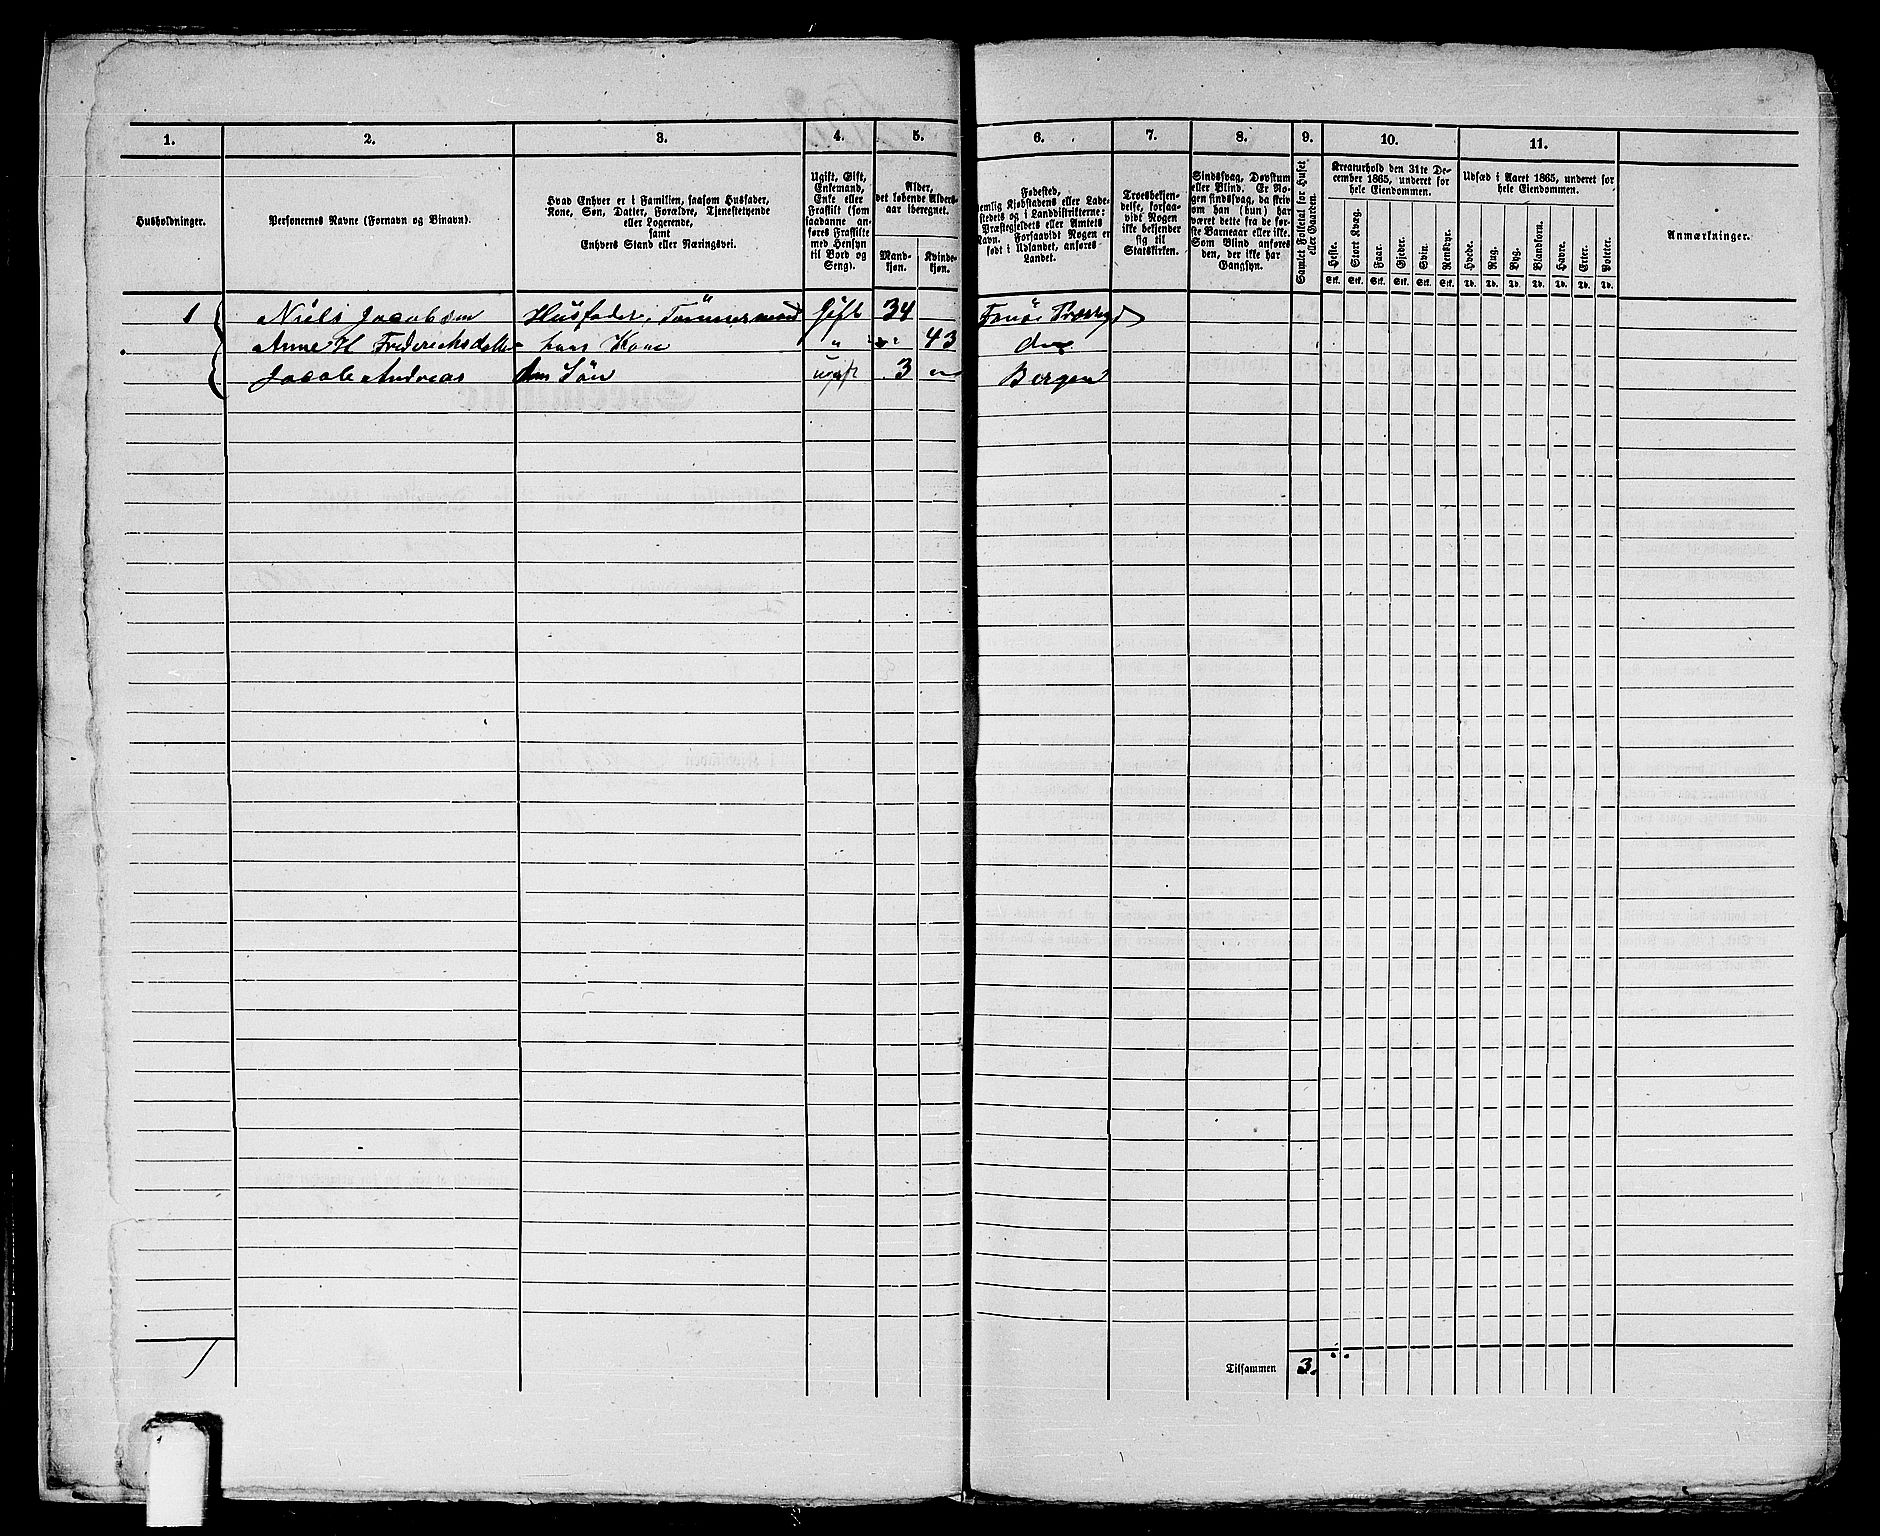 1. 2. 3. 4. 5. 6. 7. 8. 9. 10. 11.
Husholdninger.
Personernes Navne (Fornavn og Binavn).
Hvad Enhver er i Familien, saasom Husfader,
Kone, Søn, Datter, Forældre, Tjenestetyende
eller Logerende,
samt
Enhvers Stand eller Næringsvei.
Ugift, Gift,
Enkemand,
Enke eller
Fraskilt (som
saadanne an-
føres Fraskilte
med Hensyn
til Bord og
Seng).
Alder,
det løbende Alders-
aar iberegnet.
Mand-
kjøn.
Kvinde-
kjøn.
Fødested,
nemlig Kjøbstadens eller Lade-
stedets og i Landdistrikterne:
Præstegjeldets eller Amtets
Navn. Forsaavidt Nogen er
født i Udlandet, anføres
Landet.
Troesbekjen-
delse, forsaa-
vidt Nogen
ikke bekjender
sig til
Statskirken.
Sindssvag, Døvstum
eller Blind. Er No-
gen sindssvag, da skriv
om han (hun) har
været dette fra de før-
ste Barneaar eller ikke.
Som Blind anføres
den, der ikke har
Gangsyn.
Samlet Folketal for Huset
eller Gaarden.
Kreaturhold den 31te De-
cember 1865, underet for
hele Eiendommen.
Heste. Stort Kvæg. Faar. Gjeder. Svin. Rensdyr.
Stk. Stk. Stk. Stk. Stk. Stk.
Udsæd i Aaret 1865, underet for
hele Eiendommen.
Hvede. Rug. Byg. Blandkorn. Havre. Erter. Poteter.
Td. Td. Td. Td. Td. Td. Td.
Anmærkninger.
1 Niels Jacobsen Husfader, Tømmermand Gift 34 Fanøe Præstegd
Anne H Frederichsdatter hans Kone " " 43 do
Jacob Andreas Søn ugift 3 " Bergen
1
Tilsammen 3.